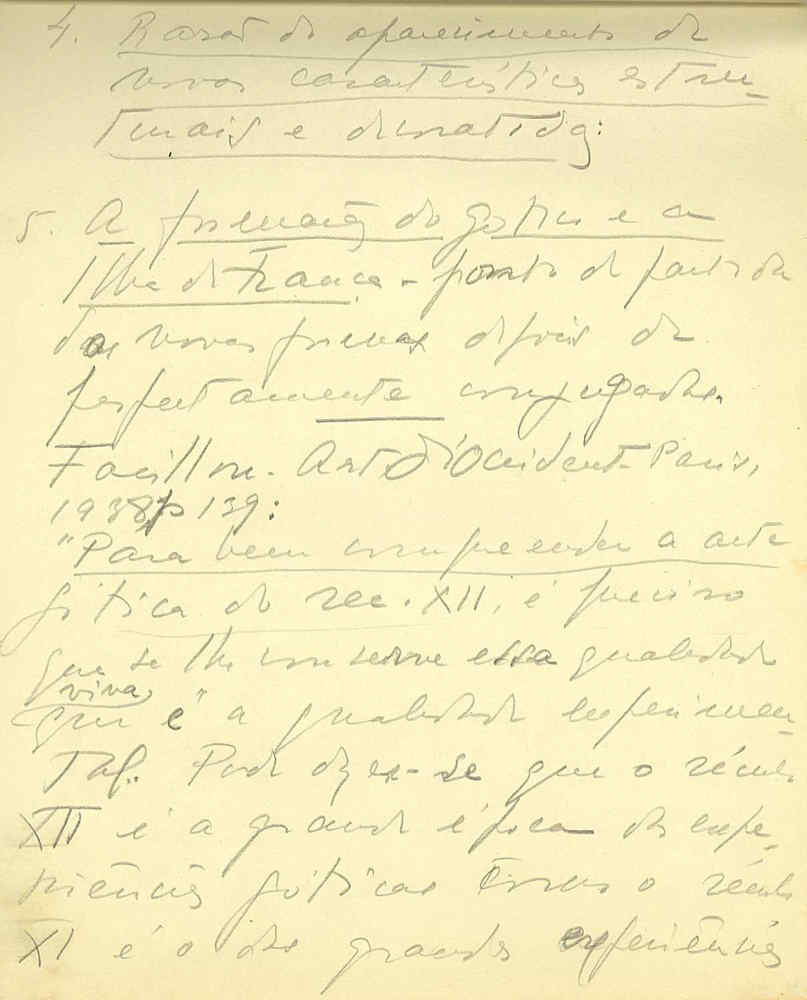 4. Razões do aparecimento de
novas características estru-
turais e decorativas:
5. A formação do gótico e a
Ilha de França - ponto de partida
das novas formas depois de
perfeitamente conjugadas.
Focillon. Art d'Occident. Paris,
1938, p 139:
"Para bem compreender a arte
gótica do sec. XII, é preciso
que se lhe conserve essa qualidade
viva,
que é" a qualidade experimen-
tal. Pode dizer-se que o século
XII é a grande época das expe-
riências góticas como o século
XI é o das grandes experiências